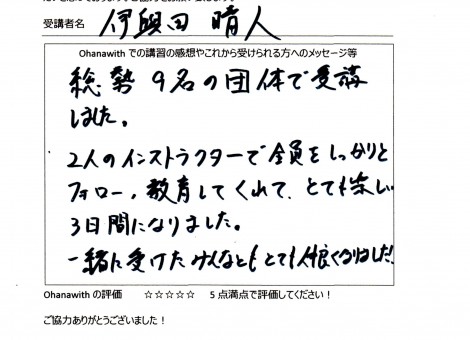 受講者名 伊與田 晴人
Ohanawith での講習の感想やこれから受けられる方へのメッセージ等
総勢9名の団体で受講
しました。
2人のインストラクターで全員をしっかりと
フォロー、教育してくれて、とても楽しい
3日間になりました。
一緒に受けたみんなともとても仲良くなりました!
Ohanawith の評価 ☆☆☆☆☆ 5 点満点で評価してください!
ご協力ありがとうございました!